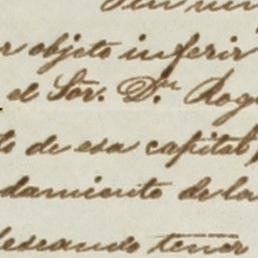 r objeto inferir
el Sor. Dn. Rog
de esa capital
damiento de la
deseando tener